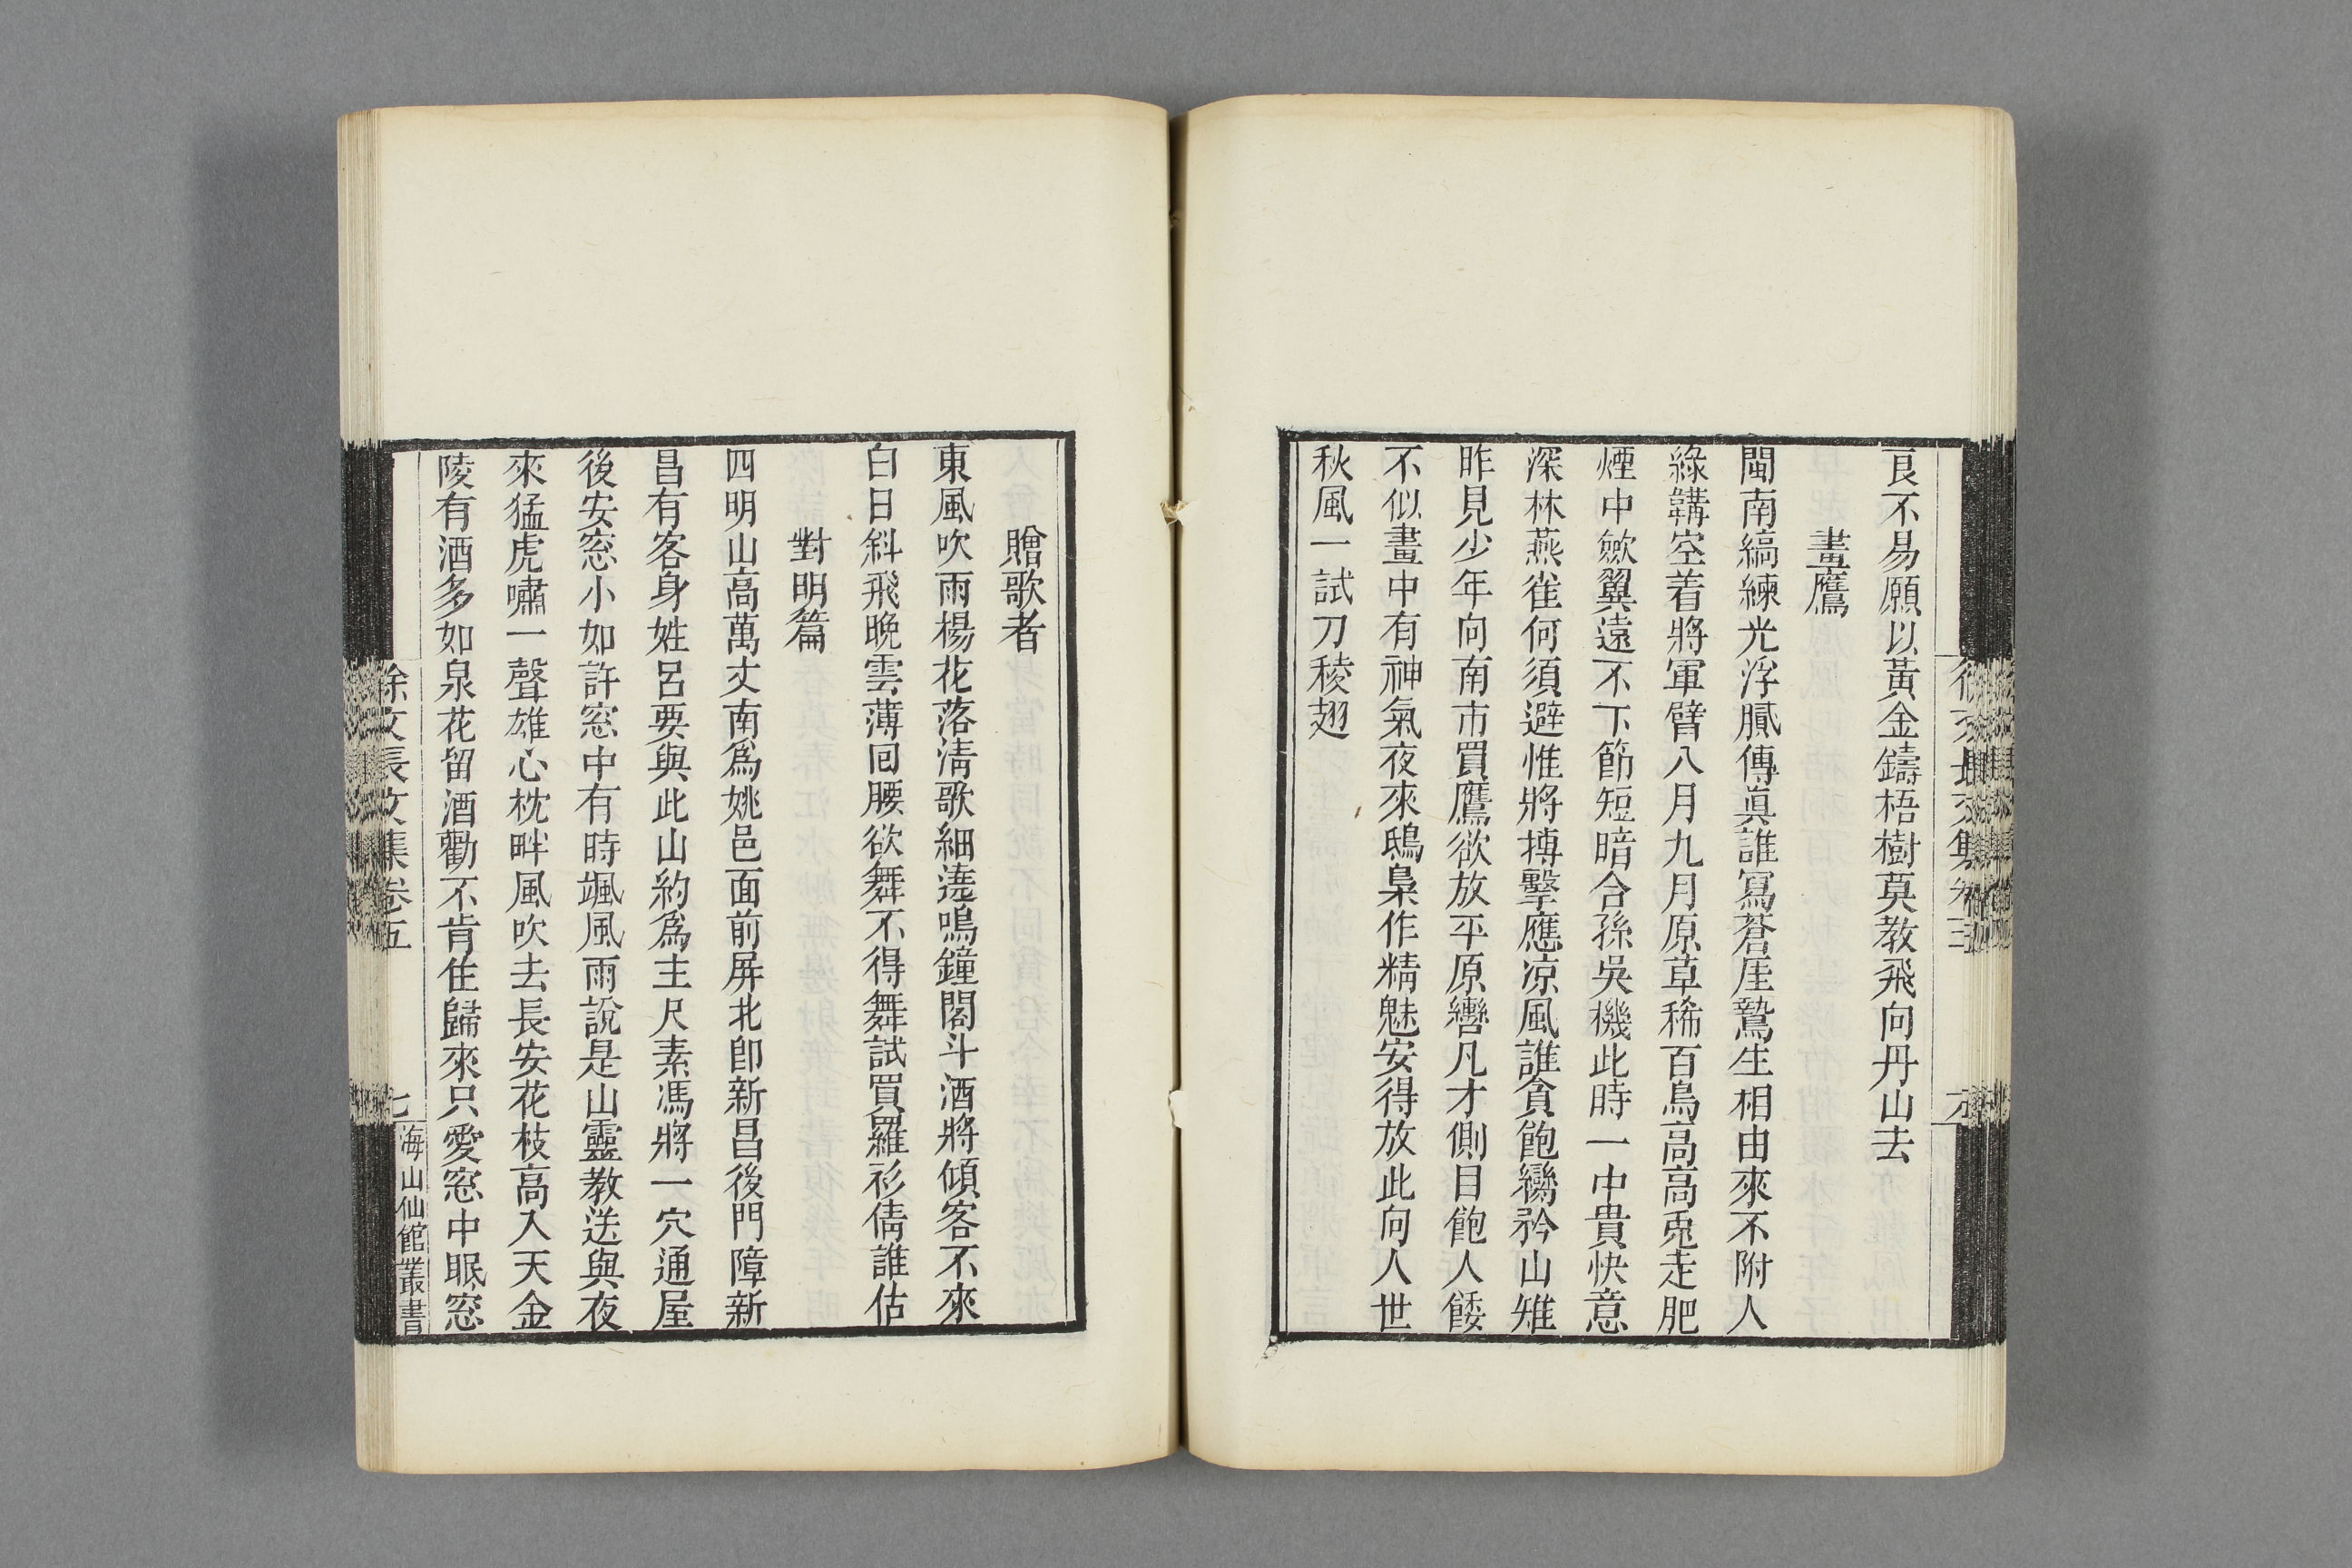 良不易願以黃金鑄梧樹莫教飛向丹山去
畫鷹
閩南縞練光浮膩傳眞誰寫蒼厓鷙生相由來不附人
綠韝空着將軍臂八月九月原草稀百鳥高高兎走肥
煙中歛翼遠不下節短暗合孫吳機此時一中貴快意
深林燕雀何須避惟將搏擊應凉風誰貪飽臠矜山雉
昨見少年向南市買鷹欲放平原轡凡才側目飽人餧
不似畫中有神氣夜來鴟梟作精魅安得放此向人世
秋風一試刀稜翅
贈歌者
東風吹雨楊花落淸歌細遶鳴鐘閣斗酒將傾客不來
白日斜飛晚雲薄囘腰欲舞不得舞試買羅衫倩誰估
對明篇
四明山高萬丈南爲姚邑面前屏北卽新昌後門障新
昌有客身姓呂要與此山約爲主尺素馮將一穴通屋
後安窓小如許窓中有時颯風雨說是山靈教送與夜
來猛虎嘯一聲雄心枕畔風吹去長安花枝高入天金
陵有酒多如泉花留酒勸不肯住歸來只愛窓中眠窓
徐文長文集卷五
七
海山仙館叢書